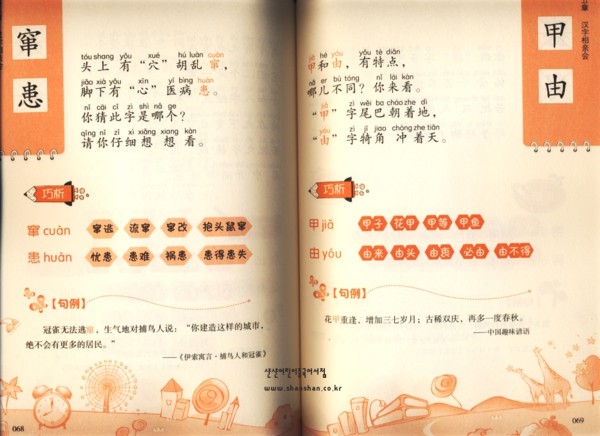 窜
患
tóu shang yǒu xué hú luàn cuàn
头上有“穴”胡乱窜,
jiǎo xià yǒu xīn yī bìng huàn
脚下有“心”医病患。
nǐ cāi cǐ zì shì nǎ ge
你猜此字是哪个?
qǐng nǐ zǐ xì xiǎng xiang kàn
请你仔细想想看。
巧析
窜 cuàn 窜逃 流窜 窜改 抱头鼠窜
患 huàn 忧患 患难 祸患 患得患失
【句例】
冠雀无法逃窜,生气地对捕鸟人说:“你建造这样的城市,
绝不会有更多的居民。”
——《伊索寓言·捕鸟人和冠雀》
068
章 汉字相亲会
甲
由
jiǎ hé yóu yǒu tè diǎn
甲和由,有特点,
nǎ er bù tóng nǐ lái kàn
哪儿不同?你来看。
jiǎ zì wěi ba cháo zhe dì
“甲”字尾巴朝着地,
yóu zì jī jiao chòng zhe tiān
“由”字犄角冲着天。
巧析
甲 jiǎ 甲子 花甲 甲等 甲鱼
由 yóu 由来 由头 由衷 必由 由不得
【句例】
花甲重逢,增加三七岁月;古稀双庆,再多一度春秋。
——中国趣味谚语
샨샨어린이중국어서점
www.shanshan.co.kr
069